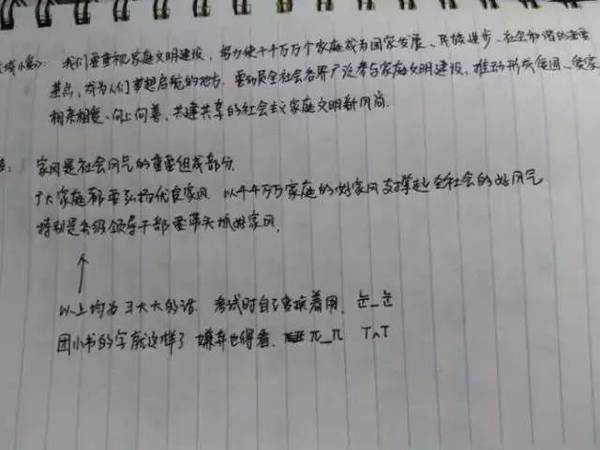 我们要重视家庭文明建设，努力使千千万万个家庭成为国家发展、民族进步、社会和谐的重要
基点，成为人们梦想启航的地方。要动员全社会各界广泛参与家庭文明建设，推动形成爱国、爱家
相亲相爱、向上向善、共建共享的社会主义家庭文明新风尚.
家风是社会风气的重要组成部分.
广大家庭都要弘扬优良家风 以千千万万家庭的好家风支撑起全社会的好风气
特别是各级领导干部要带头抓好家风.
以上均为习大大的话. 考试时自己变换着用. 눈_눈
团小书的字就这样了 嫌弃也得看. π_π T^T